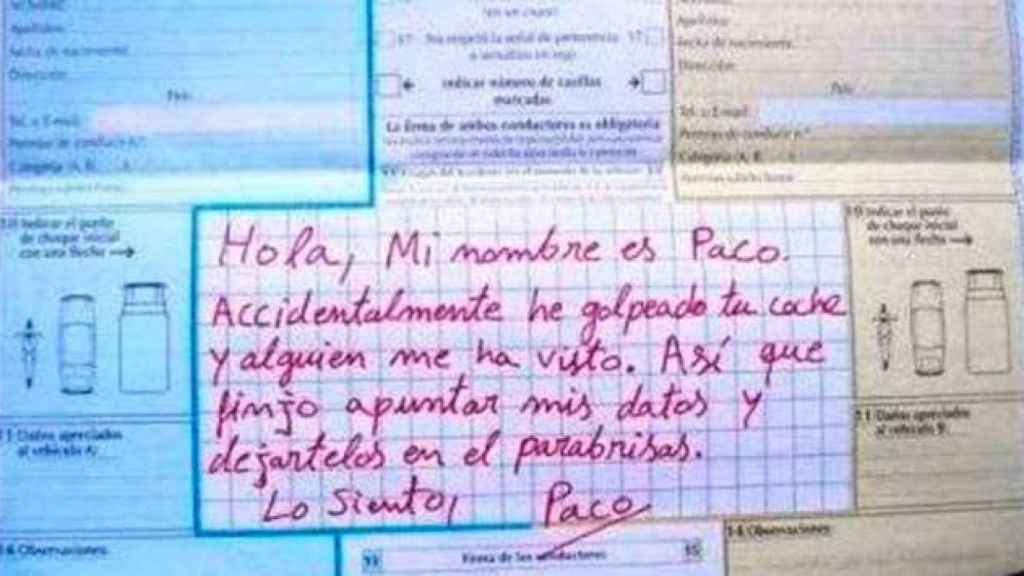 Apellidos:
Fecha de nacimiento:
Dirección:
País:
Tel. o E-mail:
Permiso de conducir n.º
Categoría (A, B, ...)
17 No respetó la señal de preferencia 17
o semáforo en rojo
← indicar número de casillas →
marcadas
La firma de ambos conductores es obligatoria
Apellidos:
Fecha de nacimiento:
Dirección:
País:
Tel. o E-mail:
Permiso de conducir n.º
Categoría (A, B, ...)
10 Indicar el punto
de choque inicial
con una flecha →
Hola, Mi nombre es Paco.
Accidentalmente he golpeado tu coche
y alguien me ha visto. Así que
finjo apuntar mis datos y
dejártelos en el parabrisas.
Lo Siento, Paco
10 Indicar el punto
de choque inicial
con una flecha →
11 Daños apreciados
al vehículo A:
11 Daños apreciados
al vehículo B:
14 Observaciones:
15 Firma de los conductores 15
14 Observaciones: